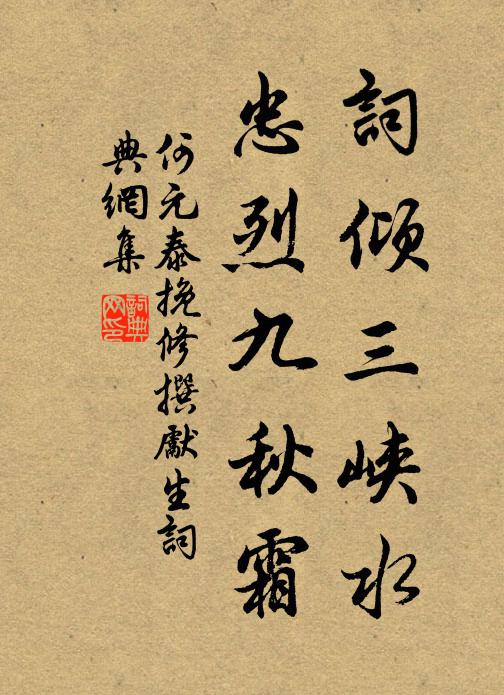 詞傾三峽水
忠烈九秋霜
何元泰挽修撰獻生詞
典網集
詞典网印